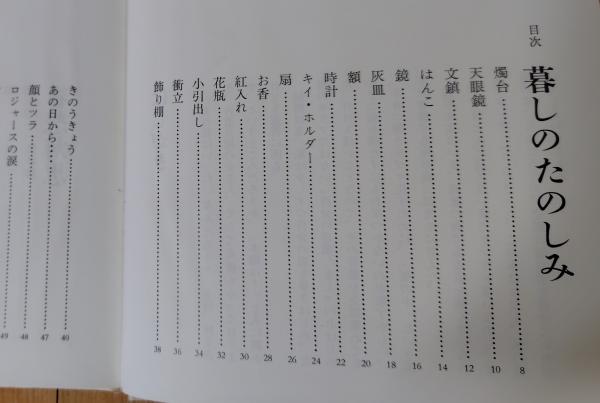 目次
暮しのたのしみ
燭台……8
天眼鏡……10
文鎮……12
はんこ……14
鏡……16
灰皿……18
額……20
時計……22
キイ・ホルダー……24
扇……26
お香……28
紅入れ……30
花瓶……32
小引出し……34
衝立……36
飾り棚……38
きのうきょう……40
あの日から……47
顔とツラ……48
ロジャースの涙……49